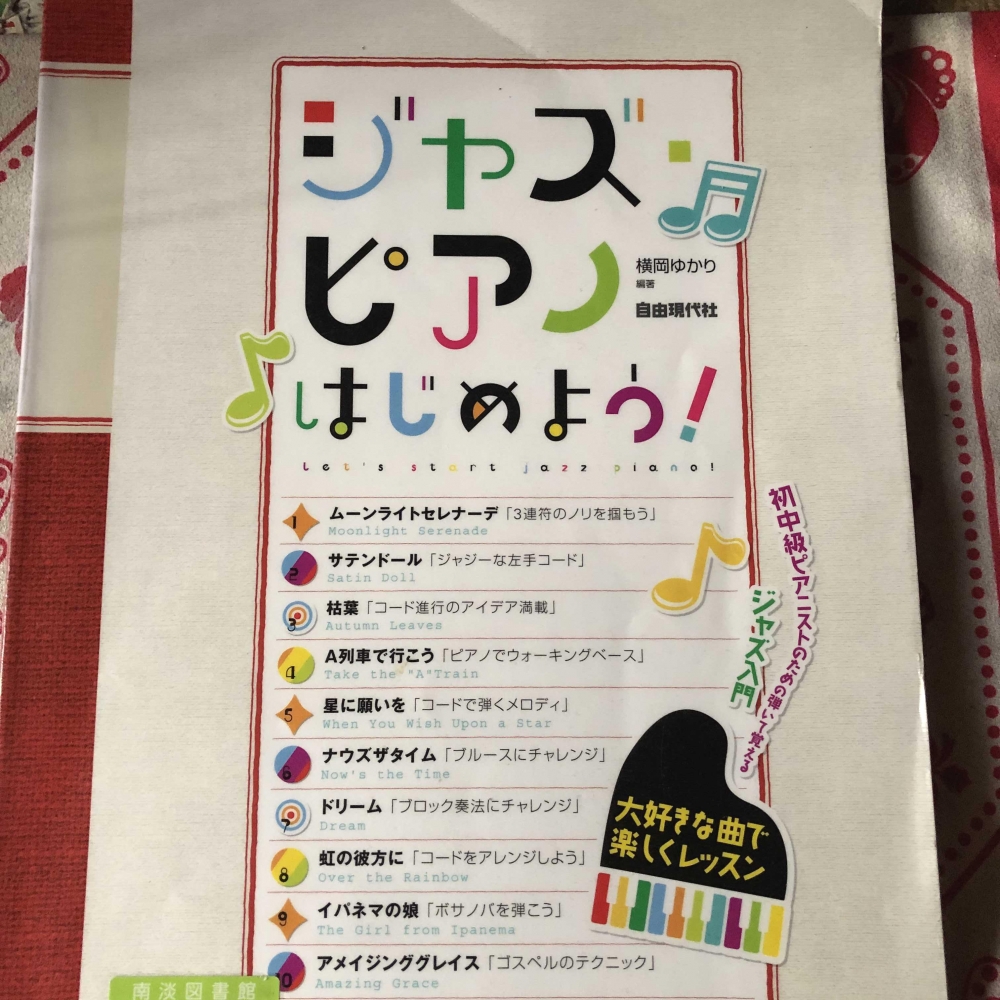 ジャズ
ピアノ
はじめよう!
横岡ゆかり
編著
自由現代社
Let's start jazz piano!
1 ムーンライトセレナーデ「3連符のノリを掴もう」
Moonlight Serenade
2 サテンドール「ジャジーな左手コード」
Satin Doll
3 枯葉「コード進行のアイデア満載」
Autumn Leaves
4 A列車で行こう「ピアノでウォーキングベース」
Take the "A"Train
5 星に願いを「コードで弾くメロディ」
When You Wish Upon a Star
6 ナウズザタイム「ブルースにチャレンジ」
Now's the Time
7 ドリーム「ブロック奏法にチャレンジ」
Dream
8 虹の彼方に「コードをアレンジしよう」
Over the Rainbow
9 イパネマの娘「ボサノバを弾こう」
The Girl from Ipanema
10 アメイジンググレイス「ゴスペルのテクニック」
Amazing Grace
初中級ピアニストのための弾いて覚える
ジャズ入門
大好きな曲で
楽しくレッスン
南淡図書館